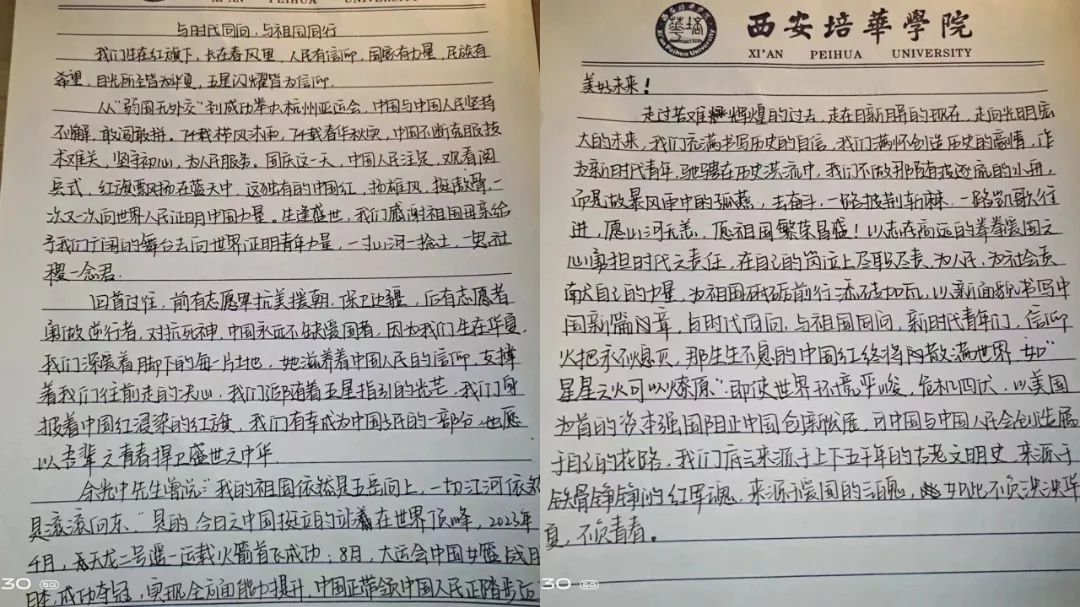 XI'AN PEIHUA UNIVERSITY
与时代同向，与祖国同行
我们生在红旗下，长在春风里，人民有信仰，国家有力量，民族有
希望，目光所至皆为华夏，五星闪耀皆为信仰。
从“弱国无外交”到成功举办杭州亚运会，中国与中国人民坚持
不懈，敢闯敢拼。74载栉风沐雨，74载春华秋实，中国不断克服技
术难关，坚守初心，为人民服务。国庆这一天，中国人民注足，观看阅
兵式，红旗飘扬在蓝天中，这独有的中国红，扬雄风，挺傲骨，一
次又一次向世界人民证明中国力量。生逢盛世，我们感谢祖国母亲给
予我们广阔的舞台去向世界证明青年力量，一寸山河一抔土，一思社
稷一念君.
回首过往，前有志愿军抗美援朝，保卫边疆，后有志愿者
勇做逆行者，对抗死神，中国永远不缺爱国者，因为我们生在华夏，
我们深爱着脚下的每一片土地，她滋养着中国人民的信仰，支撑
着我们往前走的决心，我们追随着五星指引的光芒，我们身
披着中国红浸染的红旗，我们有幸成为中国发展的一部分，也愿
以吾辈之青春捍卫盛世之中华.
余光中先生曾说：“我的祖国依然是五岳向上，一切江河依然
是滚滚向东，”是的，今日之中国挺立的站着在世界顶峰，2023年
4月，天龙二号遥一运载火箭首飞成功；8月，大运会中国女篮战胜日
本，成功夺冠，实现全方面能力提升，中国正带领中国人民正踏步迈
30 5G
西安培華學院
XI'AN PEIHUA UNIVERSITY
美好未来！
走过苦难辉煌的过去，走在日新月异的现在，走向光明宏
大的未来，我们充满书写历史的自信，我们满怀创造历史的豪情，作
为新时代青年，驰骋在历史洪流中，我们不做那随波逐流的小舟，
而是做暴风雨中的孤燕，去奋斗，一路披荆斩棘，一路凯歌往
进，愿山河无恙，愿祖国繁荣昌盛！以志在高远的拳拳爱国之
心勇担时代之责任，在自己的岗位上尽职尽责，为人民，为社会贡
献自己的力量，为祖国砥砺前行添砖加瓦，以新面貌书写中
国新篇章，与时代同向，与祖国同向，新时代青年们，信仰
火把永不熄灭，那生生不息的中国红终将散满世界，如“
星星之火可以燎原”即使世界环境严峻，危机四伏，以美国
为首的资本强国阻止中国创新发展，可中国与中国人民会创造属
于自己的花路，我们底气来源于上下五千年的古老文明史，来源于
铁骨铮铮的红军魂，来源于爱国的三魄，如此不负泱泱华
夏，不负青春。
30 5G